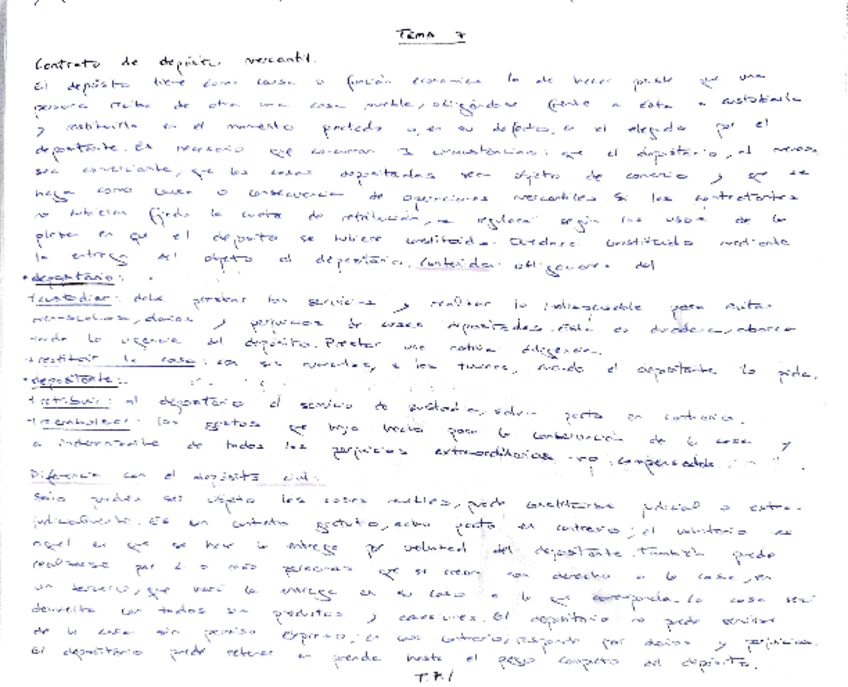 TEMA 7
Contrato de depósito mercantil.
El depósito tiene como causa o función económica la de hacer posible que una
persona reciba de otra una cosa mueble, obligándose frente a ésta a custodiarla
y restituirla en el momento pactado o, en su defecto, en el elegido por el
depositante. Es necesario que concurran 3 circunstancias: que el depositario, al menos,
sea comerciante, que las cosas depositadas sean objeto de comercio y que se
haga como causa o consecuencia de operaciones mercantiles. Si los contratantes
no hubieran fijado la cuota de retribución, se regulará según los usos de la
plaza en que el depósito se hubiere constituido. Quedará constituido mediante
la entrega del objeto al depositario. Contenido: obligaciones del
• depositario:
+ custodiar: debe prestar los servicios y realizar lo indispensable para evitar
daños y perjuicios de cosas depositadas. es duradera, abarca
la vigencia del depósito. Prestar una diligencia.
+ restituir la cosa: con sus cuando el depositante lo pida.
• depositante:
+ retribuir: al depositario el servicio de custodia, salvo pacto en contrario.
+ reembolsar: los gastos que haya hecho para la conservación de la cosa y
a indemnizarle de todos los perjuicios extraordinarios no compensados
Diferencia con el depósito civil:
Sólo pueden ser objeto las cosas muebles, puede constituirse judicial o extra-
judicialmente. Es un contrato gratuito, salvo pacto en contrario; el voluntario es
aquel en que se hace la entrega por voluntad del depositante. También puede
realizarse por 2 o más personas que se crean con derecho a la cosa, en
un tercero, que hará la entrega en su caso a la que corresponda. La cosa será
devuelta con todos sus productos y accesiones. El depositario no puede servirse
de la cosa sin permiso expreso; en caso contrario, responde por daños y perjuicios.
El depositario puede retener en prenda hasta el pago completo del depósito.
T.7/